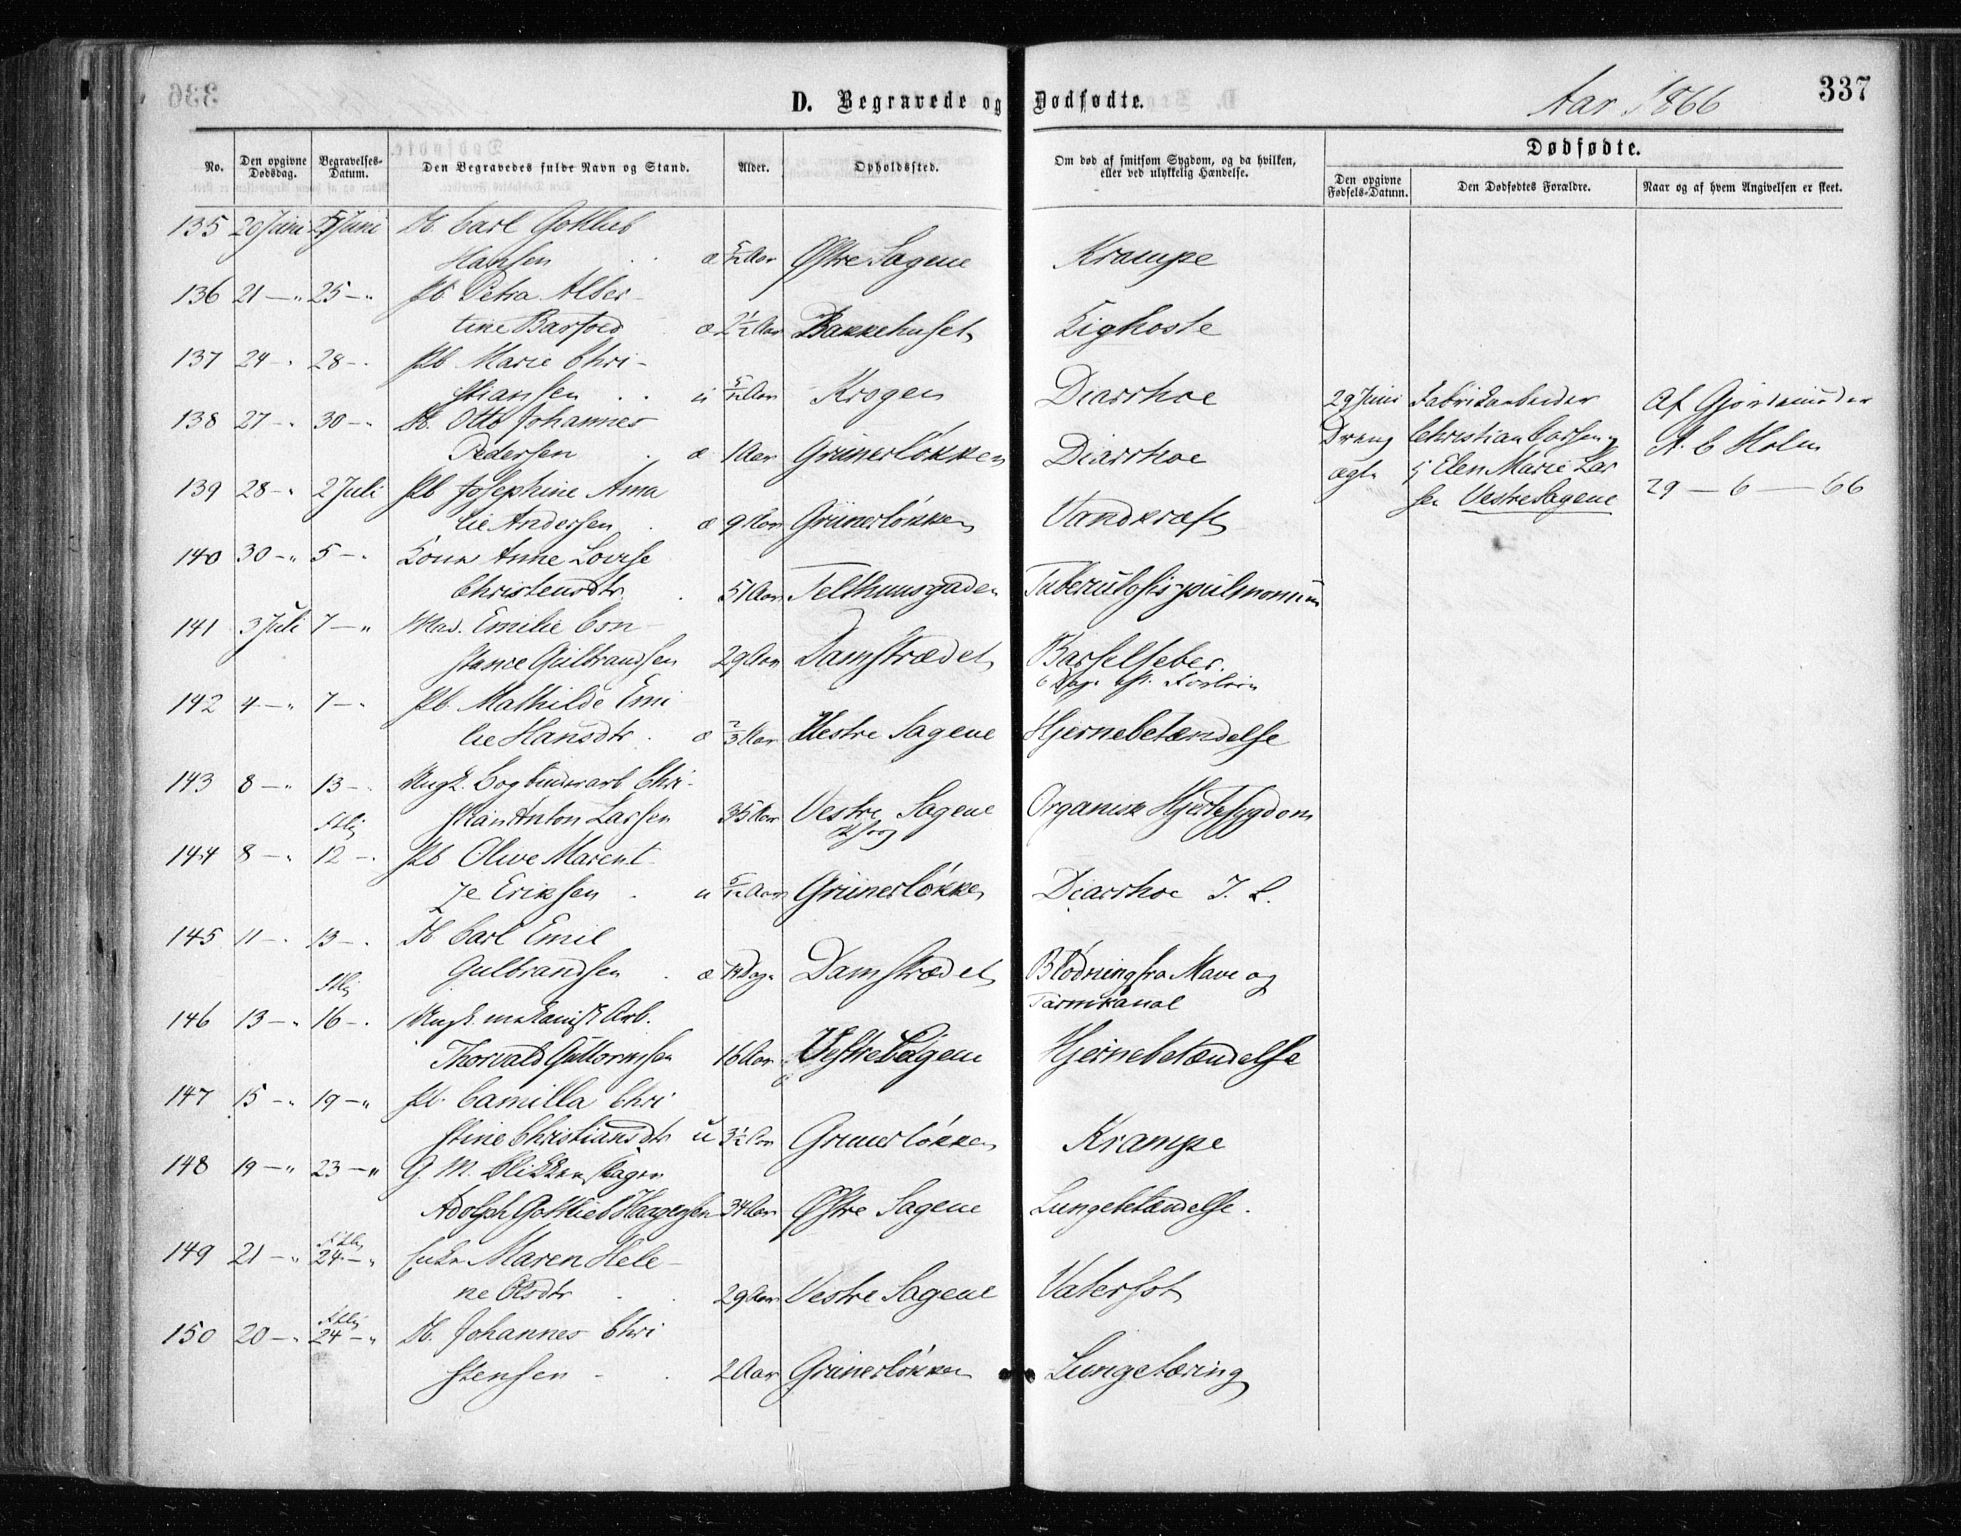 336
D. Begravede og Dødfødte.
Aar 1866
337
No.
Den opgivne Dødsdag.
Begravelses-Datum.
Den Begravedes fulde Navn og Stand.
Alder.
Opholdssted.
Om død af smitsom Sygdom, og da hvilken, eller ved ulykkelig Hændelse.
Dødfødte.
Den opgivne Fødsels-Datum.
Den Dødfødtes Forældre.
Naar og af hvem Angivelsen er skeet.
135 20 Juni Juni Carl Gottlieb
Hansen æ 5/12 Aar Østre Sagene Krampe
136 21 — " 25 — " Pb. Petra Alber-
tine Barfoed æ 2 1/2 Aar Bakkehuset Kighoste
137 24 — " 28 — " Pb Marie Chri-
stiansen u 5/12 Aar Krogen Diarrhoe
138 27 — " 30 — " Otto Johannes
Pedersen æ 1 Aar Grünerløkken Diarrhoe
139 28 — " 2 Juli Pb Josephine Ama
lie Andersen æ 9 Aar Grünerløkken Vandkræft
140 30 — " 5 — " Kone Anne Lovise
Christensdtr. 51 Aar Telthusgaden Tuberculosis pulmonum
141 3 Juli 7 — " Mad. Emilie Con-
stance Gulbrandsen 29 Aar Damstrædet Barselfeber.
6 Dage eft. Forløsn
142 4 — " 7 — " Pb. Mathilde Emi
lie Hansdtr. æ 2/3 Aar Vestre Sagene Hjernebetændelse
143 8 — " 13 — " Ungk. Bogbinderarb Chri-
stian Anton Larsen 35 Aar Vestre Sagene Organisk Hjertesygdom
144 8 — " 12 — " Pb Olive Marent-
je Eriksen u 5/12 Aar Grünerløkken Diarrhoe I. L.
145 11 — " 13 — " Carl Emil
Gulbrandsen æ 14 Dage Damstrædet Blødning fra Mave og
Tarmkanal
146 13 — " 16 — " Ungk. mekanisk Arb.
Thorvald Guttormsen 16 Aar Vestre Sagene Hjernebetændelse
147 15 — " 19 — " Pb. Camilla Chri
stine Christiansdtr u 3 1/2 Aar Grünerløkken Krampe
148 19 — " 23 — " G. M. Blikkenslager
Adolph Gottlieb 34 Aar Østre Sagene Lungebetændelse.
149 21 — " 24 — " Enke Maren Hele-
ne Olsdtr 29 Aar Vestre Sagene Vatersot
150 20 — " 24 — " Johannes Chri
stensen 2 Aar Grünerløkken Lungetæring
29 Juni
Dreng
ægte
Fabrikarbeider
Christian Larsen og
Elen Marie Lar
sen Vestre Sagene
Af Gjordemoder
A. C Holm
29 — 6 — 66